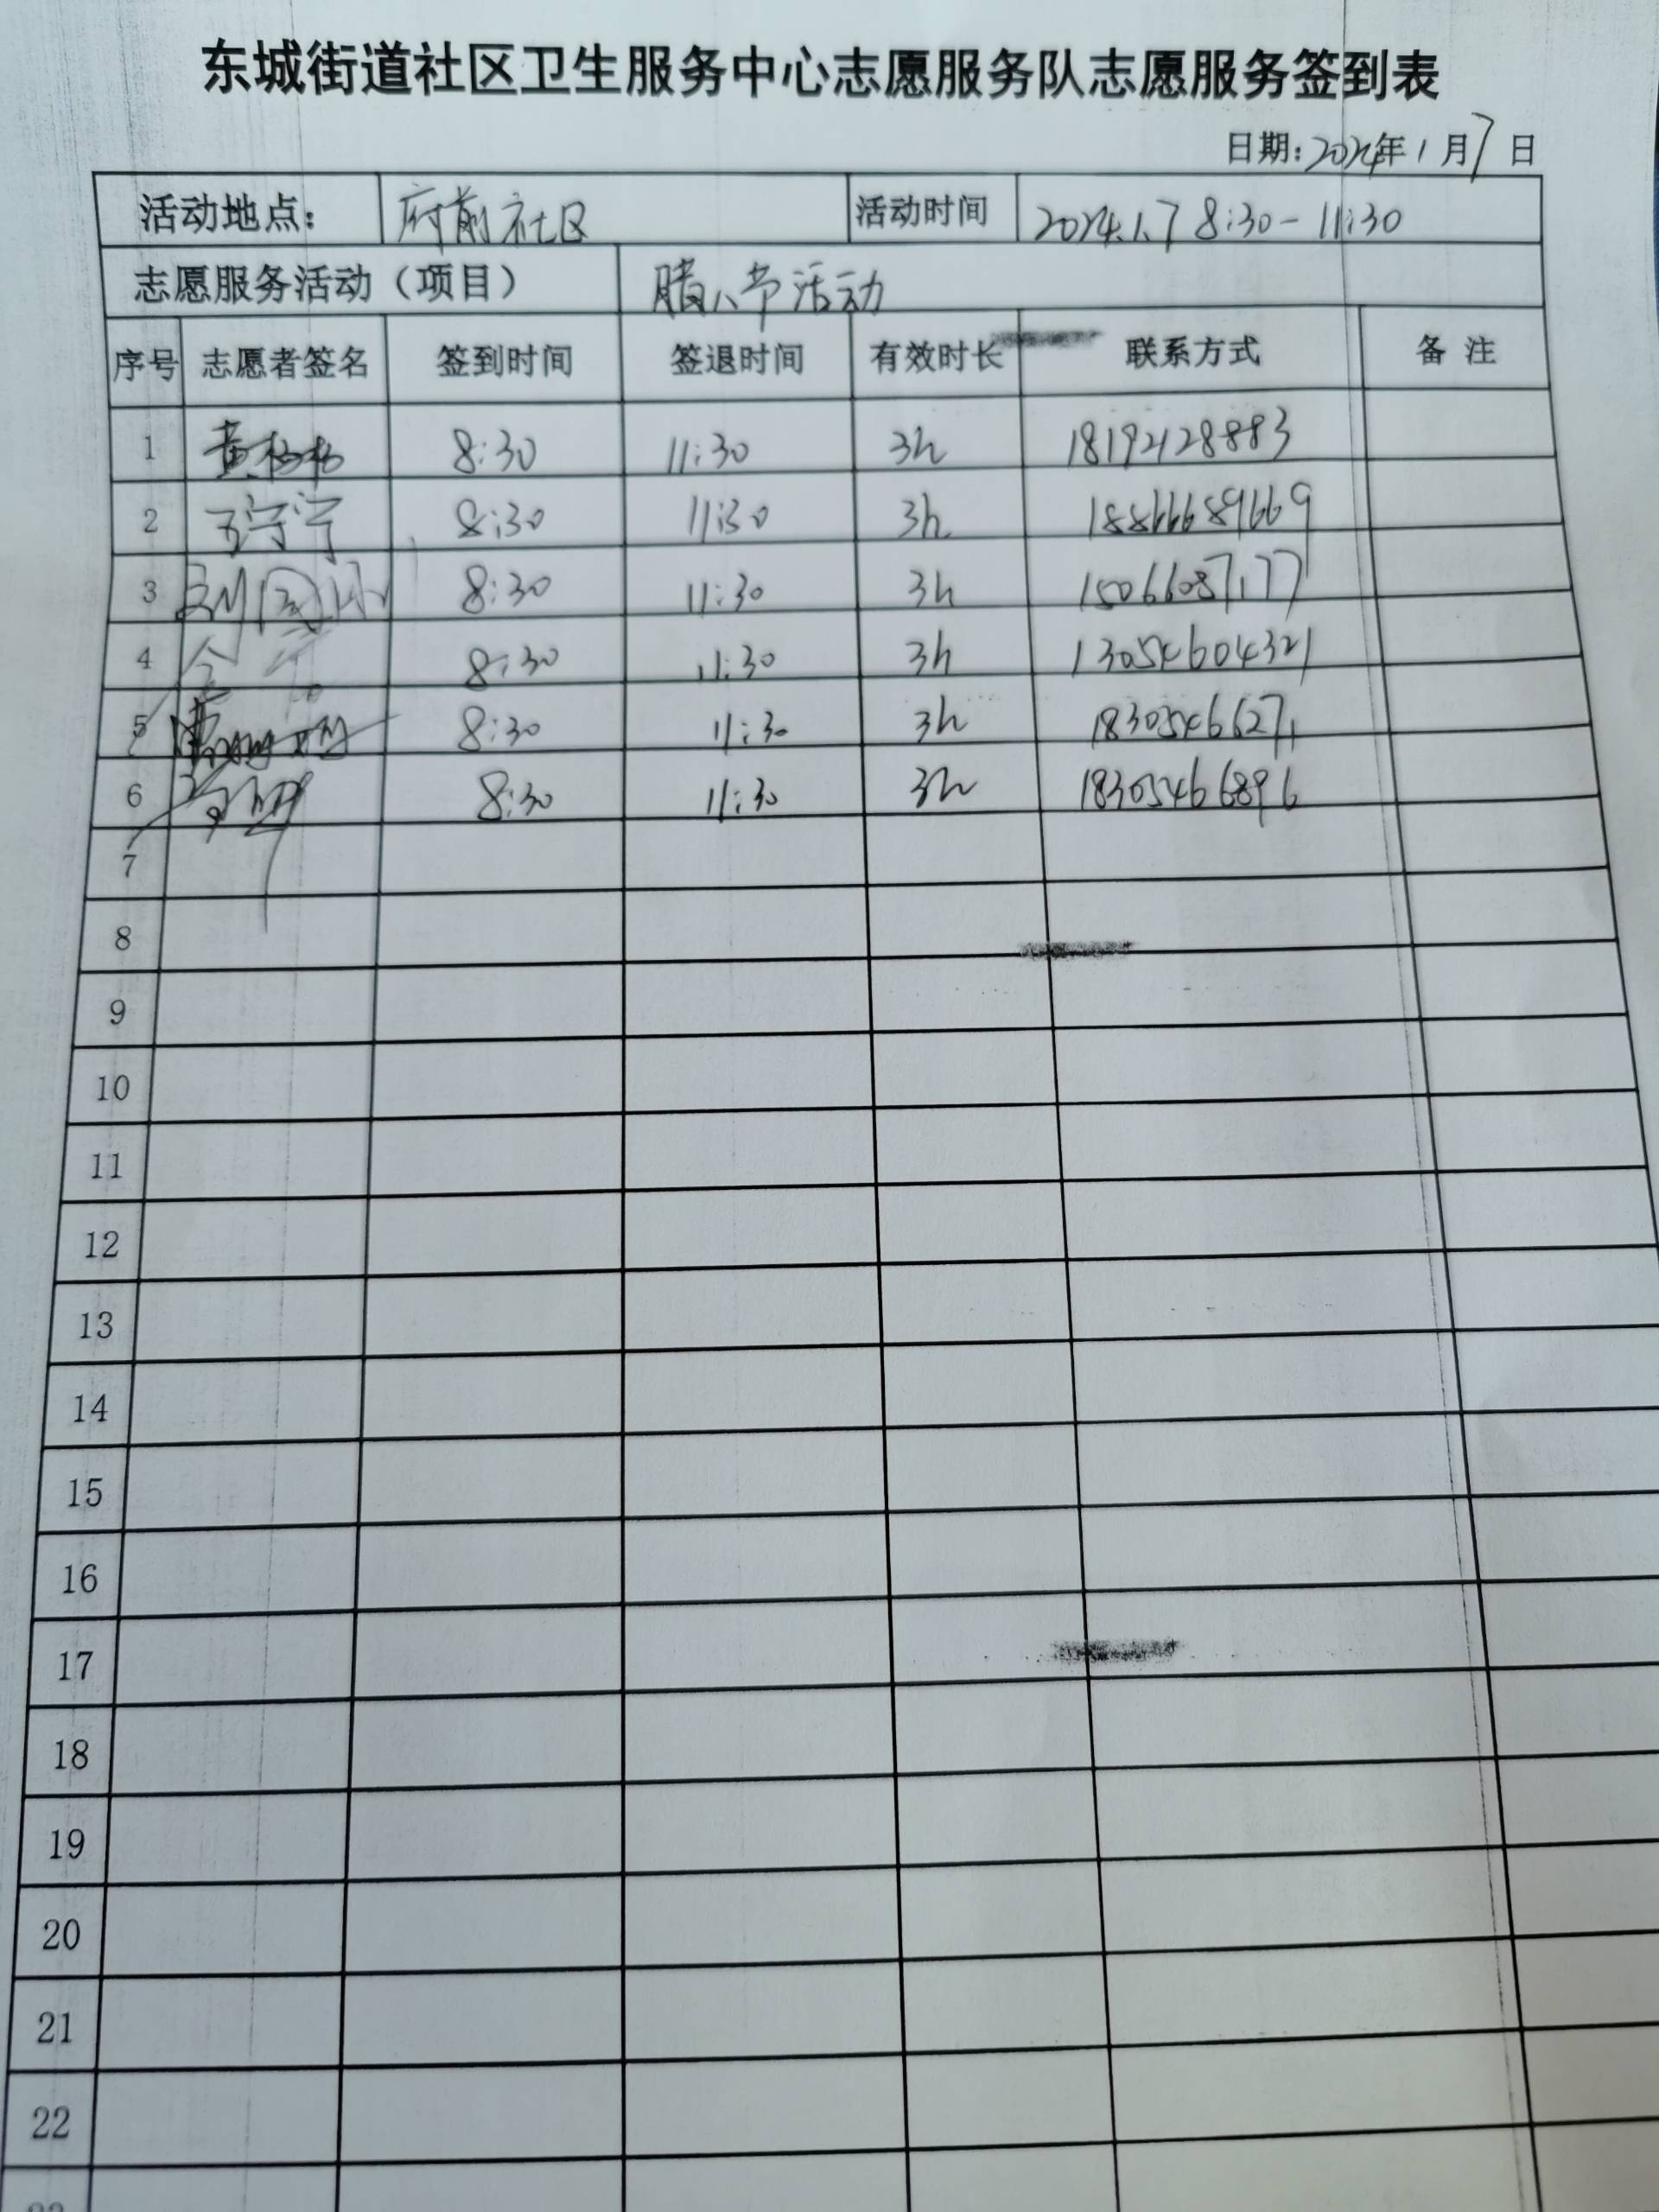 东城街道社区卫生服务中心志愿服务队志愿服务签到表
日期:2024年1月7日
活动地点: 府前社区 活动时间 2024.1.7 8:30-11:30
志愿服务活动（项目） 腊八节活动
序号 志愿者签名 签到时间 签退时间 有效时长 联系方式 备注
1 黄杨杨 8:30 11:30 3h 18192128883
2 王宁宁 8:30 11:30 3h 18866689669
3 8:30 11:30 3h 15066087177
4 8:30 11:30 3h 13054604321
5 8:30 11:30 3h 18305466271
6 8:30 11:30 3h 18305466896
7
8
9
10
11
12
13
14
15
16
17
18
19
20
21
22